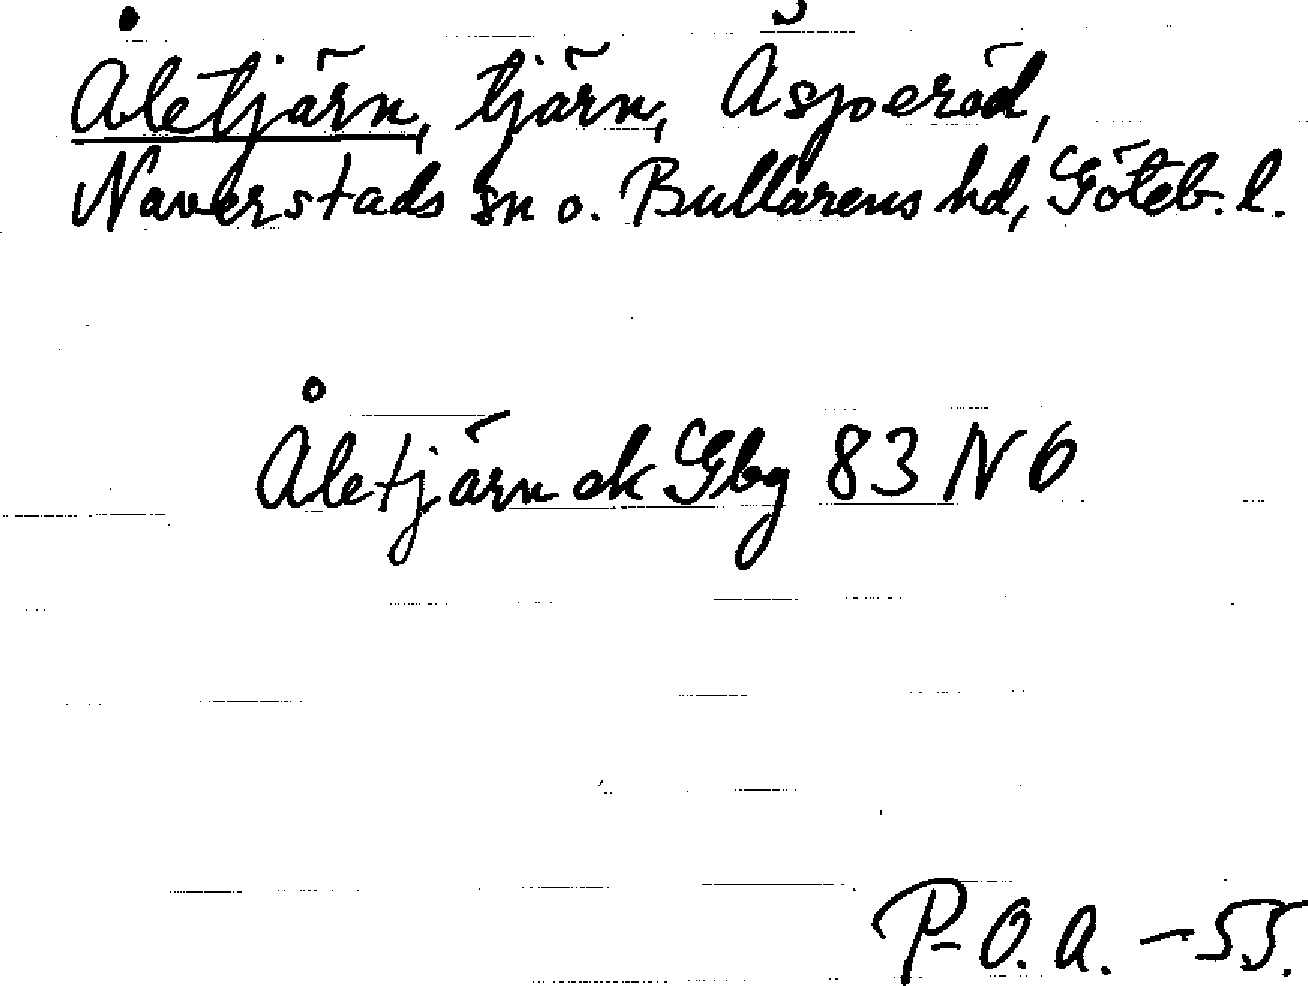 Åletjärn, tjärn, Åsperöd,
Naverstads sn o. Bullarens hd, Göteb. l.
Åletjärn ek Gbg 83 N O
P-O. A. - 55.